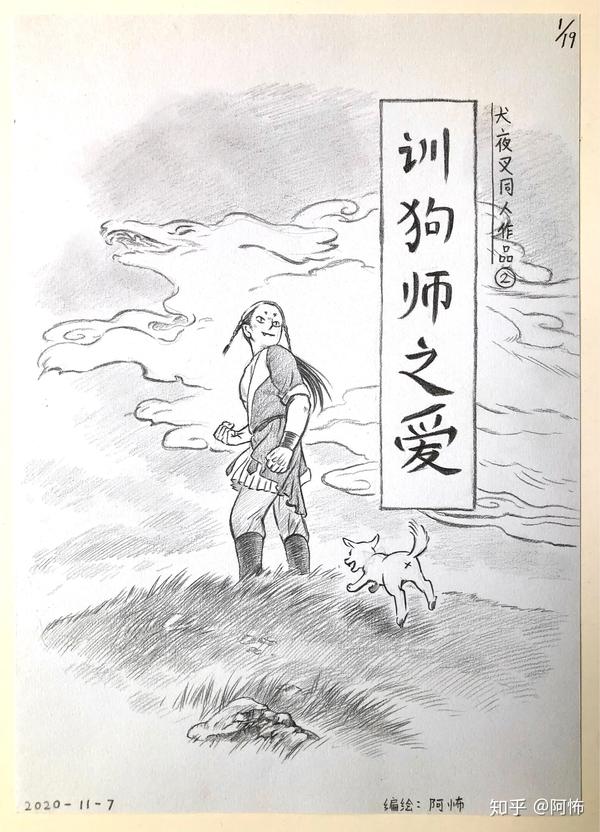 1/19
犬夜叉同人作品②
训狗师之爱
2020-11-7
编绘：阿怖
知乎 @阿怖